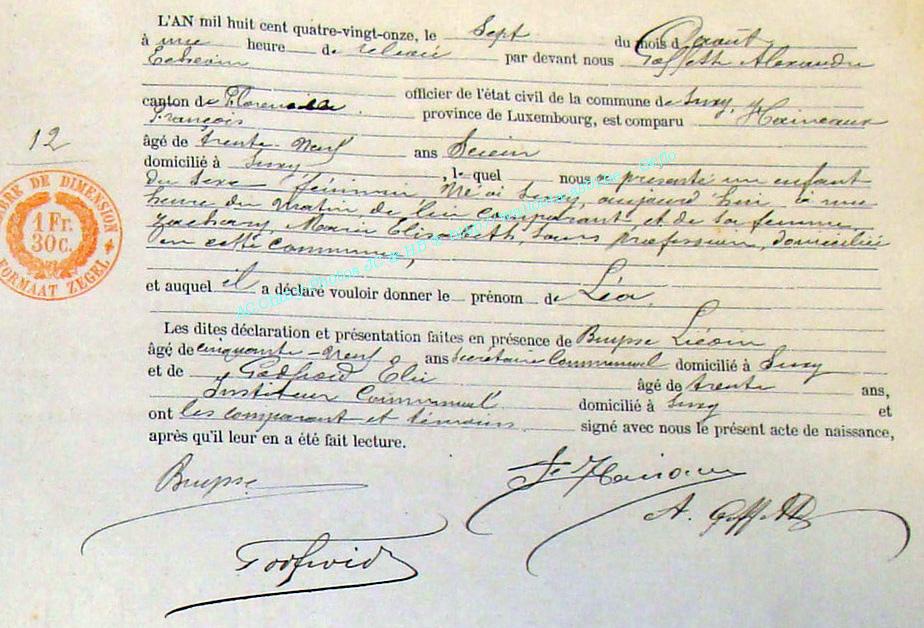 L'AN mil huit cent quatre-vingt-onze, le Sept du mois d'Août
à une heure de relevée par devant nous Goffette Alexandre
officier de l'état civil de la commune de Suxy,
canton de Florenville province de Luxembourg, est comparu Hainaux
François
âgé de trente-neuf ans Scieur
domicilié à Suxy, lequel nous a présenté un enfant
du sexe féminin né à Suxy, aujourd'hui à une
heure du matin, de lui comparant et de sa femme
Zachary, Marie Elisabeth, sans profession, domiciliée
en cette commune,
et auquel il a déclaré vouloir donner le prénom de Léa.
Les dites déclaration et présentation faites en présence de Buysse
âgé de cinquante-neuf ans Secrétaire Communal domicilié à Suxy
et de Godfroid Elie âgé de trente ans,
Instituteur Communal domicilié à Suxy et
ont les comparant et témoins signé avec nous le présent acte de naissance,
après qu'il leur en a été fait lecture.
12
TIMBRE DE DIMENSION
1 Fr.
30 c.
FORMAAT ZEGEL
Buysse
A. Goffette
Godfroid